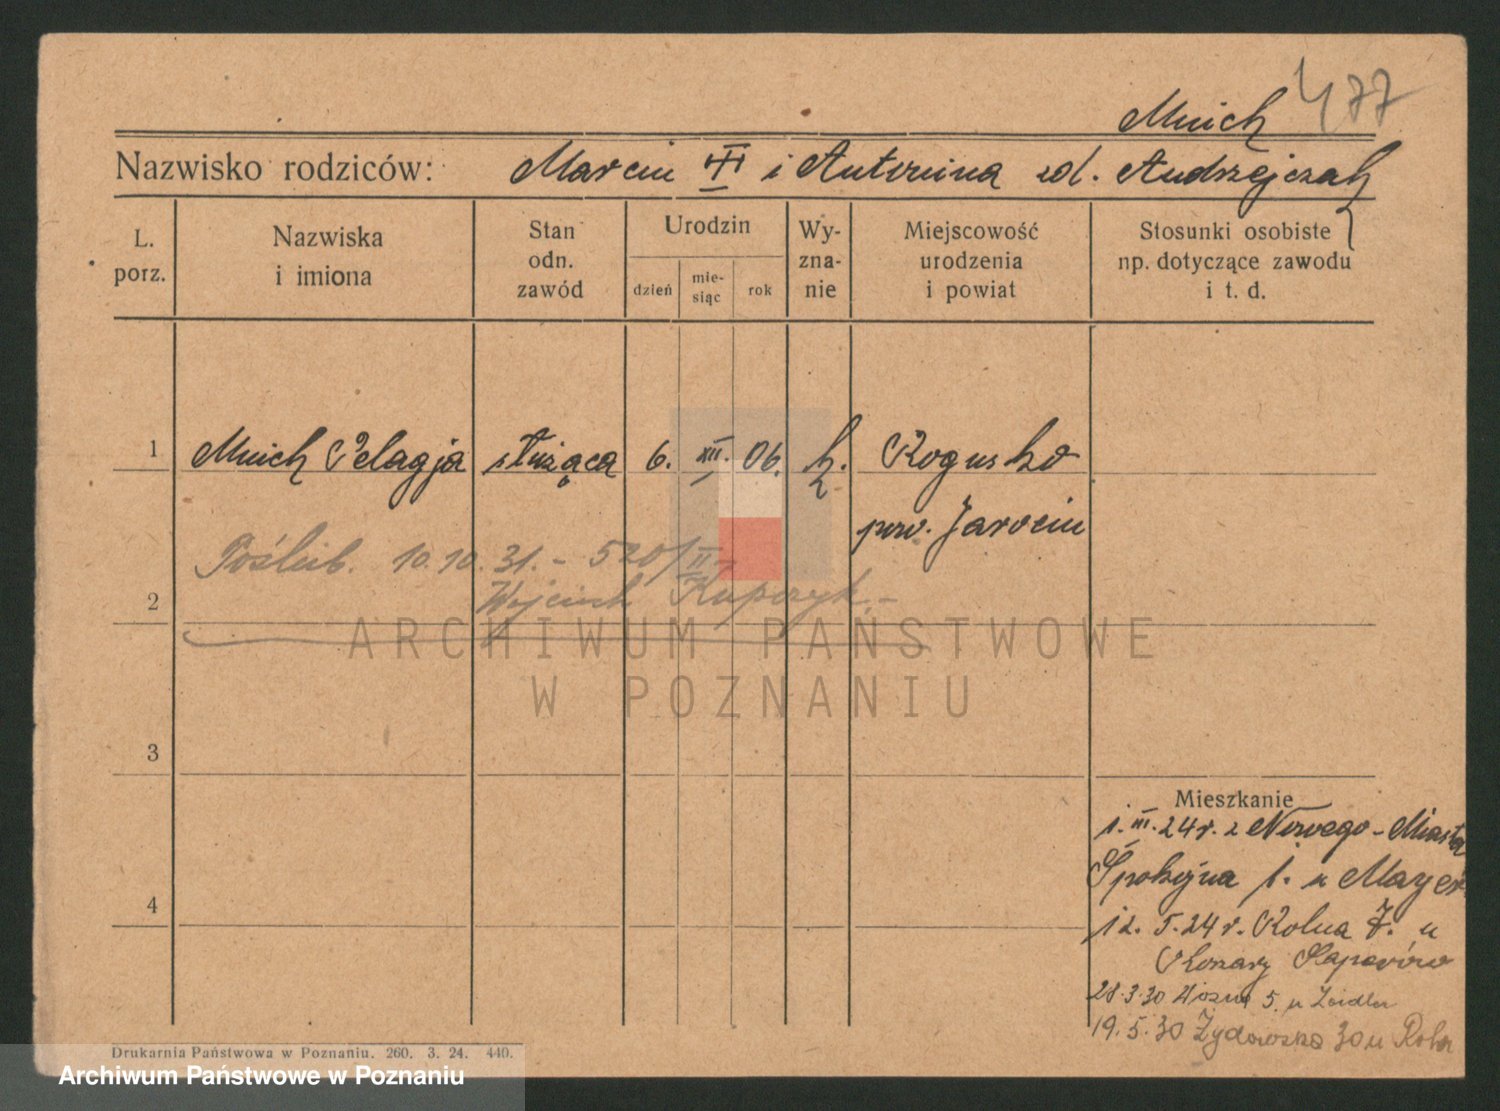 477
Mnich
Nazwisko rodziców: Marcin i Antonina zd. Andrzejczak
L. porz.
Nazwiska i imiona
Stan odn. zawód
Urodzin
dzień
mie-siąc
rok
Wy-zna-nie
Miejscowość urodzenia i powiat
Stosunki osobiste np. dotyczące zawodu i t. d.
1 Mnich Pelagja służąca 6. XII. 06. k. Rogusko
pow. Jarocin
Poślub. 10.10.31. - 520/II
2 Wojciech Kupczyk -
ARCHIWUM PAŃSTWOWE
W POZNANIU
3
Mieszkanie
1. III. 24 r. z Nowego-Miasta
4 Spokojna 1. u Mayer
12. 5. 24 r. Rolna 7. u
Saperów
28.3.30 5 u Zeidler
19.5.30 Żydowska 30 u
Drukarnia Państwowa w Poznaniu. 260. 3. 24. 440.
Archiwum Państwowe w Poznaniu